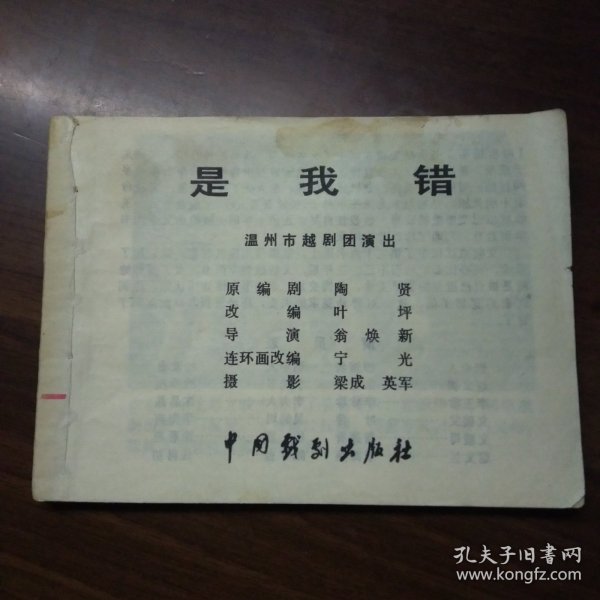 是 我 错
温州市越剧团演出
原编剧 陶 贤
改 编 叶 坪
导 演 翁焕新
连环画改编 宁 光
摄 影 梁成 英军
中国戏剧出版社
孔夫子旧书网
www.kongfz.com